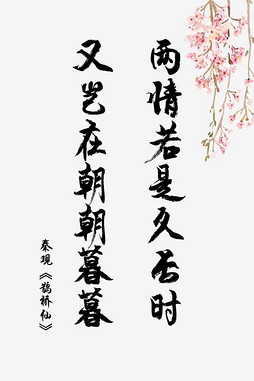 两情若是久长时
又岂在朝朝暮暮
秦观《鹊桥仙》